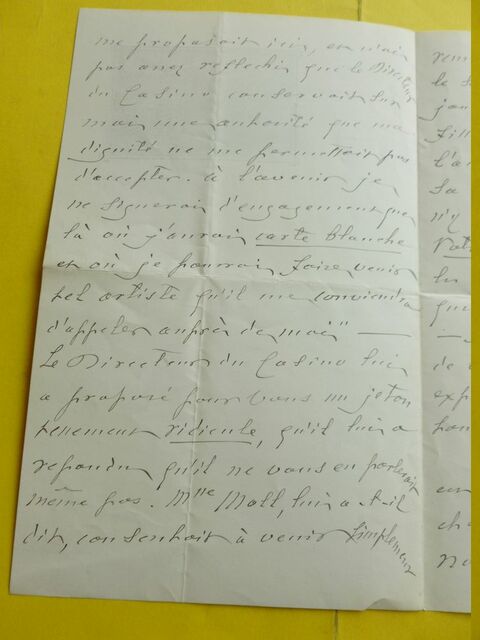 me proposait ici, et n'ai
pas assez reflechis que le Directeur
du Casino conservait sur
moi une authorité que ma
dignité ne me permettait pas
d'accepter. à l'avenir je
ne signerai d'engagement que
là où j'aurai carte blanche
et où je pourrai faire venir
tel artiste qu'il me conviendra
d'appeler auprès de moi" —
Le Directeur du Casino lui
a proposé pour vous un jeton
tellement ridicule, qu'il lui a
repondu qu'il ne vous en parlerait
même pas. Mlle Moll, lui a-t-il
dit, consentait à venir simplement
rem
le s
jou
fill
l'a
sa
n'y
Votr
les
que
—
de
exp
hon
en
ch
no